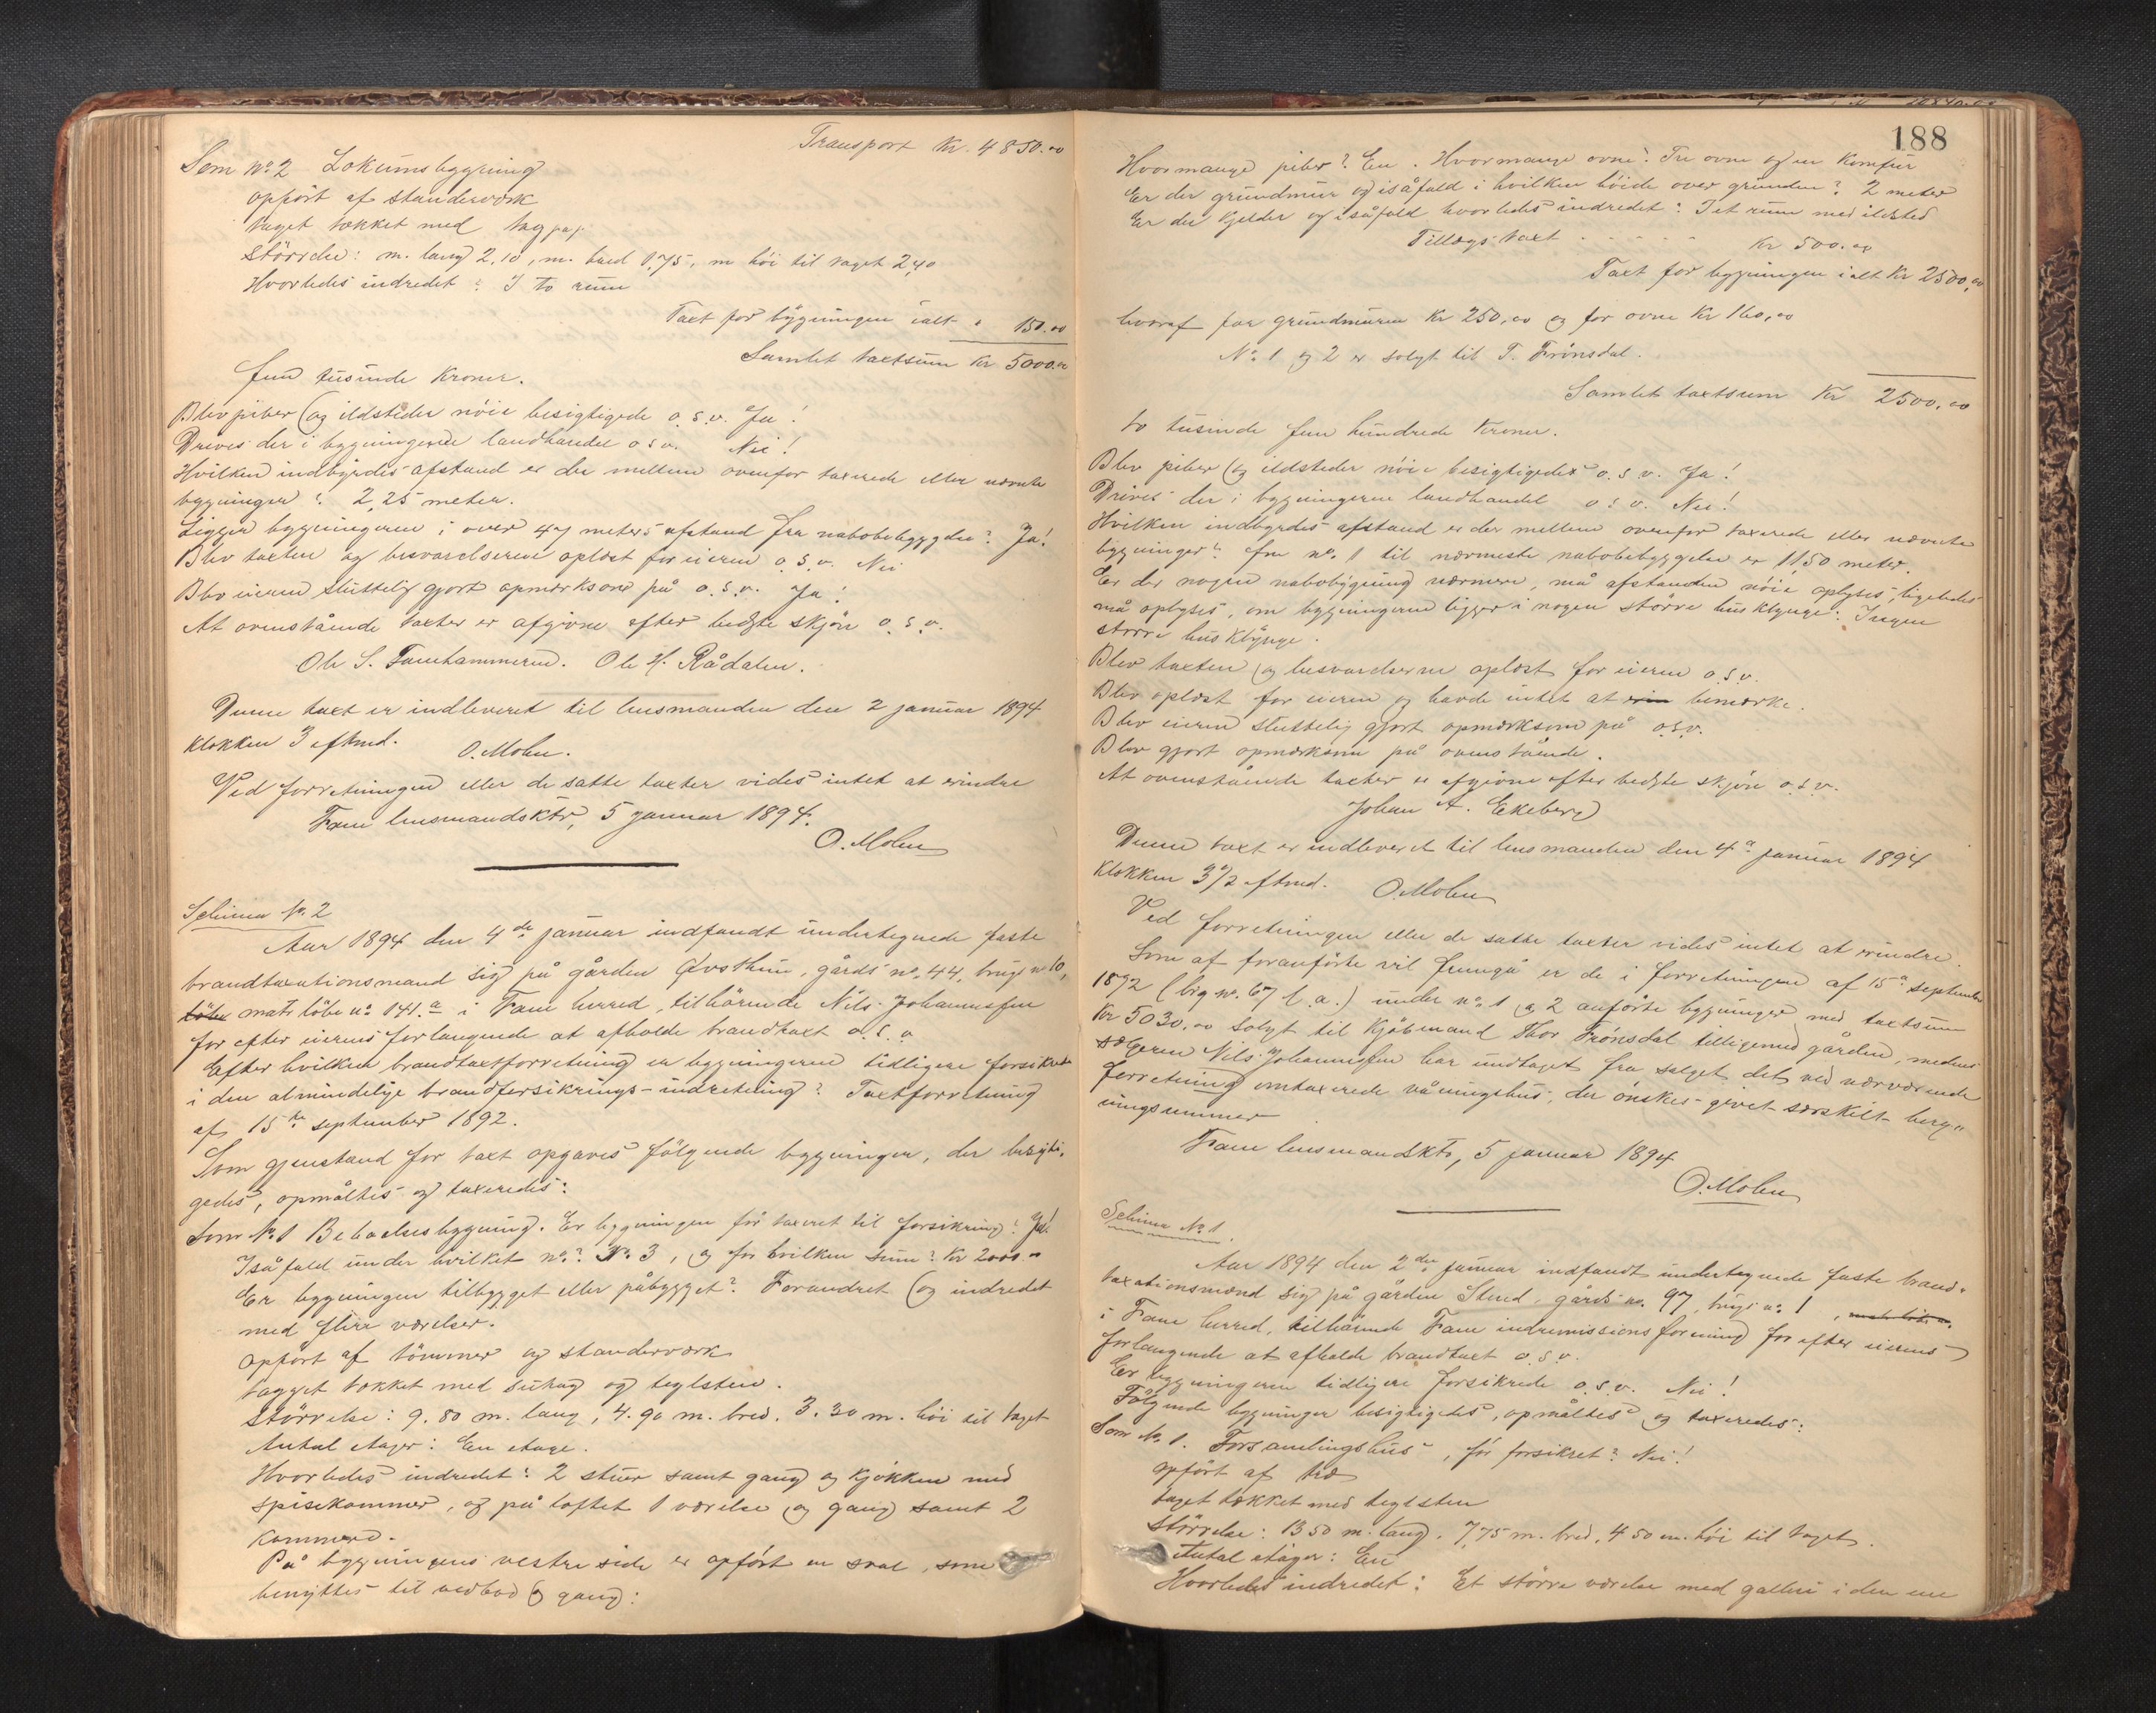 Transport Kr. 4850.00
Som No 2 Lokumsbygning
opført af standerværk
taget tækket med tagpap.
Størrelse: m. lang 2.10, m. bred 1,75, m høi til taget 2,40
Hvorledes indredet? I to rum
Taxt for bygningen ialt " 150.00
Samlet taxtsum Kr 5000.00
fem tusinde Kroner.
Blev piber og ildsteder nøie besigtigede o. s. v. Ja!
Drives der i bygningerne landhandel o s v. Nei!
Hvilken indbyrdes afstand er der mellem ovenfor taxerede eller nævnte
bygninger? 2,25 meter.
Ligger bygningerne i over 47 meters afstand fra nabobebyggelse? Ja!
Blev taxten og besvarelserne oplæst for eieren o. s. v. Nei
Blev eieren sluttelig gjort opmærksom på o. s. v. Ja!
At ovenstående taxter er afgivne efter bedste skjøn o. s. v.
Ole S. Fanehammeren. Ole H. Rådalen.
Denne taxt er indleveret til lensmanden den 2 januar 1894
Klokken 3 eftmd. O. Mohn.
Ved forretningen eller de satte taxter vides intet at erindre
Fane lensmandsktr, 5 januar 1894.
O. Mohn
Schema No. 2
Aar 1894 den 4de januar indfandt undertegnede faste
brandtaxationsmand sig på gården Øvsthun, gårds no. 44, brugs no 10,
løbe matr løbe no 141.a i Fane herred, tilhørende Nils Johannessen
for efter eierens forlangende at afholde brandtaxt o. s. v.
Efter hvilken brandtaxtforretning er bygningerne tidligere forsikrede
i den almindelige brandforsikrings-indretning? Taxtforretning
af 15de september 1892.
Som gjenstand for taxt opgaves følgende bygninger, der besigti-
gedes, opmåltes og taxeredes:
Som No 1 Beboelsesbygning. Er bygningen før taxeret til forsikring? Ja!
Iså fald under hvilket no.? No. 3, og for hvilken sum? Kr 2000.00
Er bygningen tilbygget eller påbygget? Forandret og indredet
med flere værelser.
opført af tømmer og standerværk
tagget tækket med suhag og teglsten.
Størrelse: 9.80 m. lang, 4.90 m. bred. 3.30 m. høi til taget
Antal etager: En etage.
Hvorledes indredet? 2 stuer samt gang og kjøkken med
spisekammer, og på loftet 1 værelse og gang samt 2
kammere.
På bygningens vestre side er opført en sval, som
benyttes til vedbod og gang:
188
Hvormange piber? En. Hvormange ovne? Tre ovne og en Komfur
Er der grundmur og isåfald i hvilken høide over grunden? 2 meter
Er der kjelder og isåfald hvorledes indredet? I et rum med ildsted
Tillægstaxt . . . . . Kr 500.00
Taxt for bygningen ialt Kr 2500,00
hvoraf for grundmuren Kr 250,00 og for ovne Kr 160,00
No. 1 og 2 er solgt til T. Frønsdal.
Samlet taxtsum Kr 2500.00
to tusinde fem hundrede Kroner.
Blev piber og ildsteder nøie besigtigedes o. s. v. Ja!
Drives der i bygningerne landhandel o s v. Nei!
Hvilken indbyrdes afstand er der mellem ovenfor taxerede eller nævnte
bygninger? fra no. 1 til nærmeste nabobebyggelse er 11,50 meter.
Er der nogen nabobygning nærmere, må afstanden nøie oplyses, ligeledes
må oplyses, om bygningerne ligger i nogen større husklynge: Ingen
større husklynge.
Blev taxten og besvarelserne oplæst for eieren o. s. v.
Blev oplæst for eieren og havde intet at erin bemærke.
Blev eieren sluttelig gjort opmærksom på o.s.v.
Blev gjort opmærksom på ovenstående.
At ovenstående taxter er afgivne efter bedste skjøn o. s. v.
Johan A. Ekeberg
Denne taxt er indleveret til lensmanden den 4de januar 1894
Klokken 3 1/2 eftmd. O. Mohn
Ved forretningen eller de satte taxter vides intet at erindre.
Som af foranførte vil fremgå er de i forretningen af 15de september
1892 (brg no. 67 l. a.) under no. 1 og 2 anførte bygninger med taxtsum
Kr 5030.00 solgt til Kjøbmand Thor Frønsdal tilligemed gården, medens
sælgeren Nils Johannessen har undtaget fra salget det ved nærværende
forretning omtaxerede våningshus, der ønskes givet særskilt byg-
ningsnummer
Fane lensmandskto, 5 januar 1894
O. Mohn
Schema No. 1.
Aar 1894 den 2den januar indfandt undertegnede faste brand-
taxationsmænd sig på gården Stend, gårds no. 97, brugs no. 1, matr. løb. no.
i Fane herred, tilhørende Fane indremissionsforening for efter eierens
forlangende at afholde brandtaxt o. s. v.
Er bygningerne tidligere forsikrede o. s. v. Nei!
Følgende bygninger besigtigedes, opmåltes og taxeredes:
Som No. 1. Forsamlingshus, før forsikret? Nei!
opført af træ
taget tækket med teglsten
Størrelse: 13 50 m. lang. 7,75 m. bred, 4 50 m. høi til taget.
Antal etager: En
Hvorledes indredet: Et større værelse med galleri i den ene